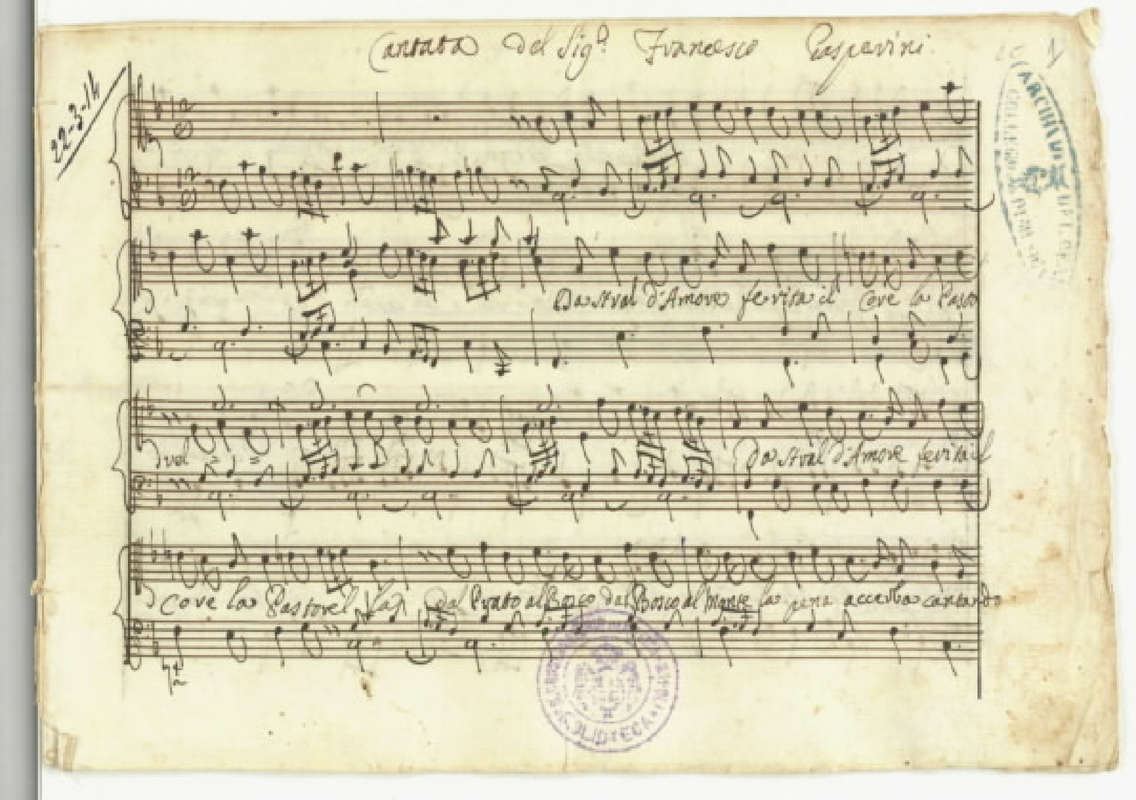 Cantata del Sig.r Francesco Gasparini.
22-3-14
1
12
8
12
8
Da stral d'Amore ferita il Core la Pasto
rel
Da stral d'Amore ferita il
Core la Pastorel la dal Prato al Bosco dal Bosco al Monte la pena accerba cantando
ARCHIVIO DEL REAL
COLLEGIO DI
BIBLIOTECA